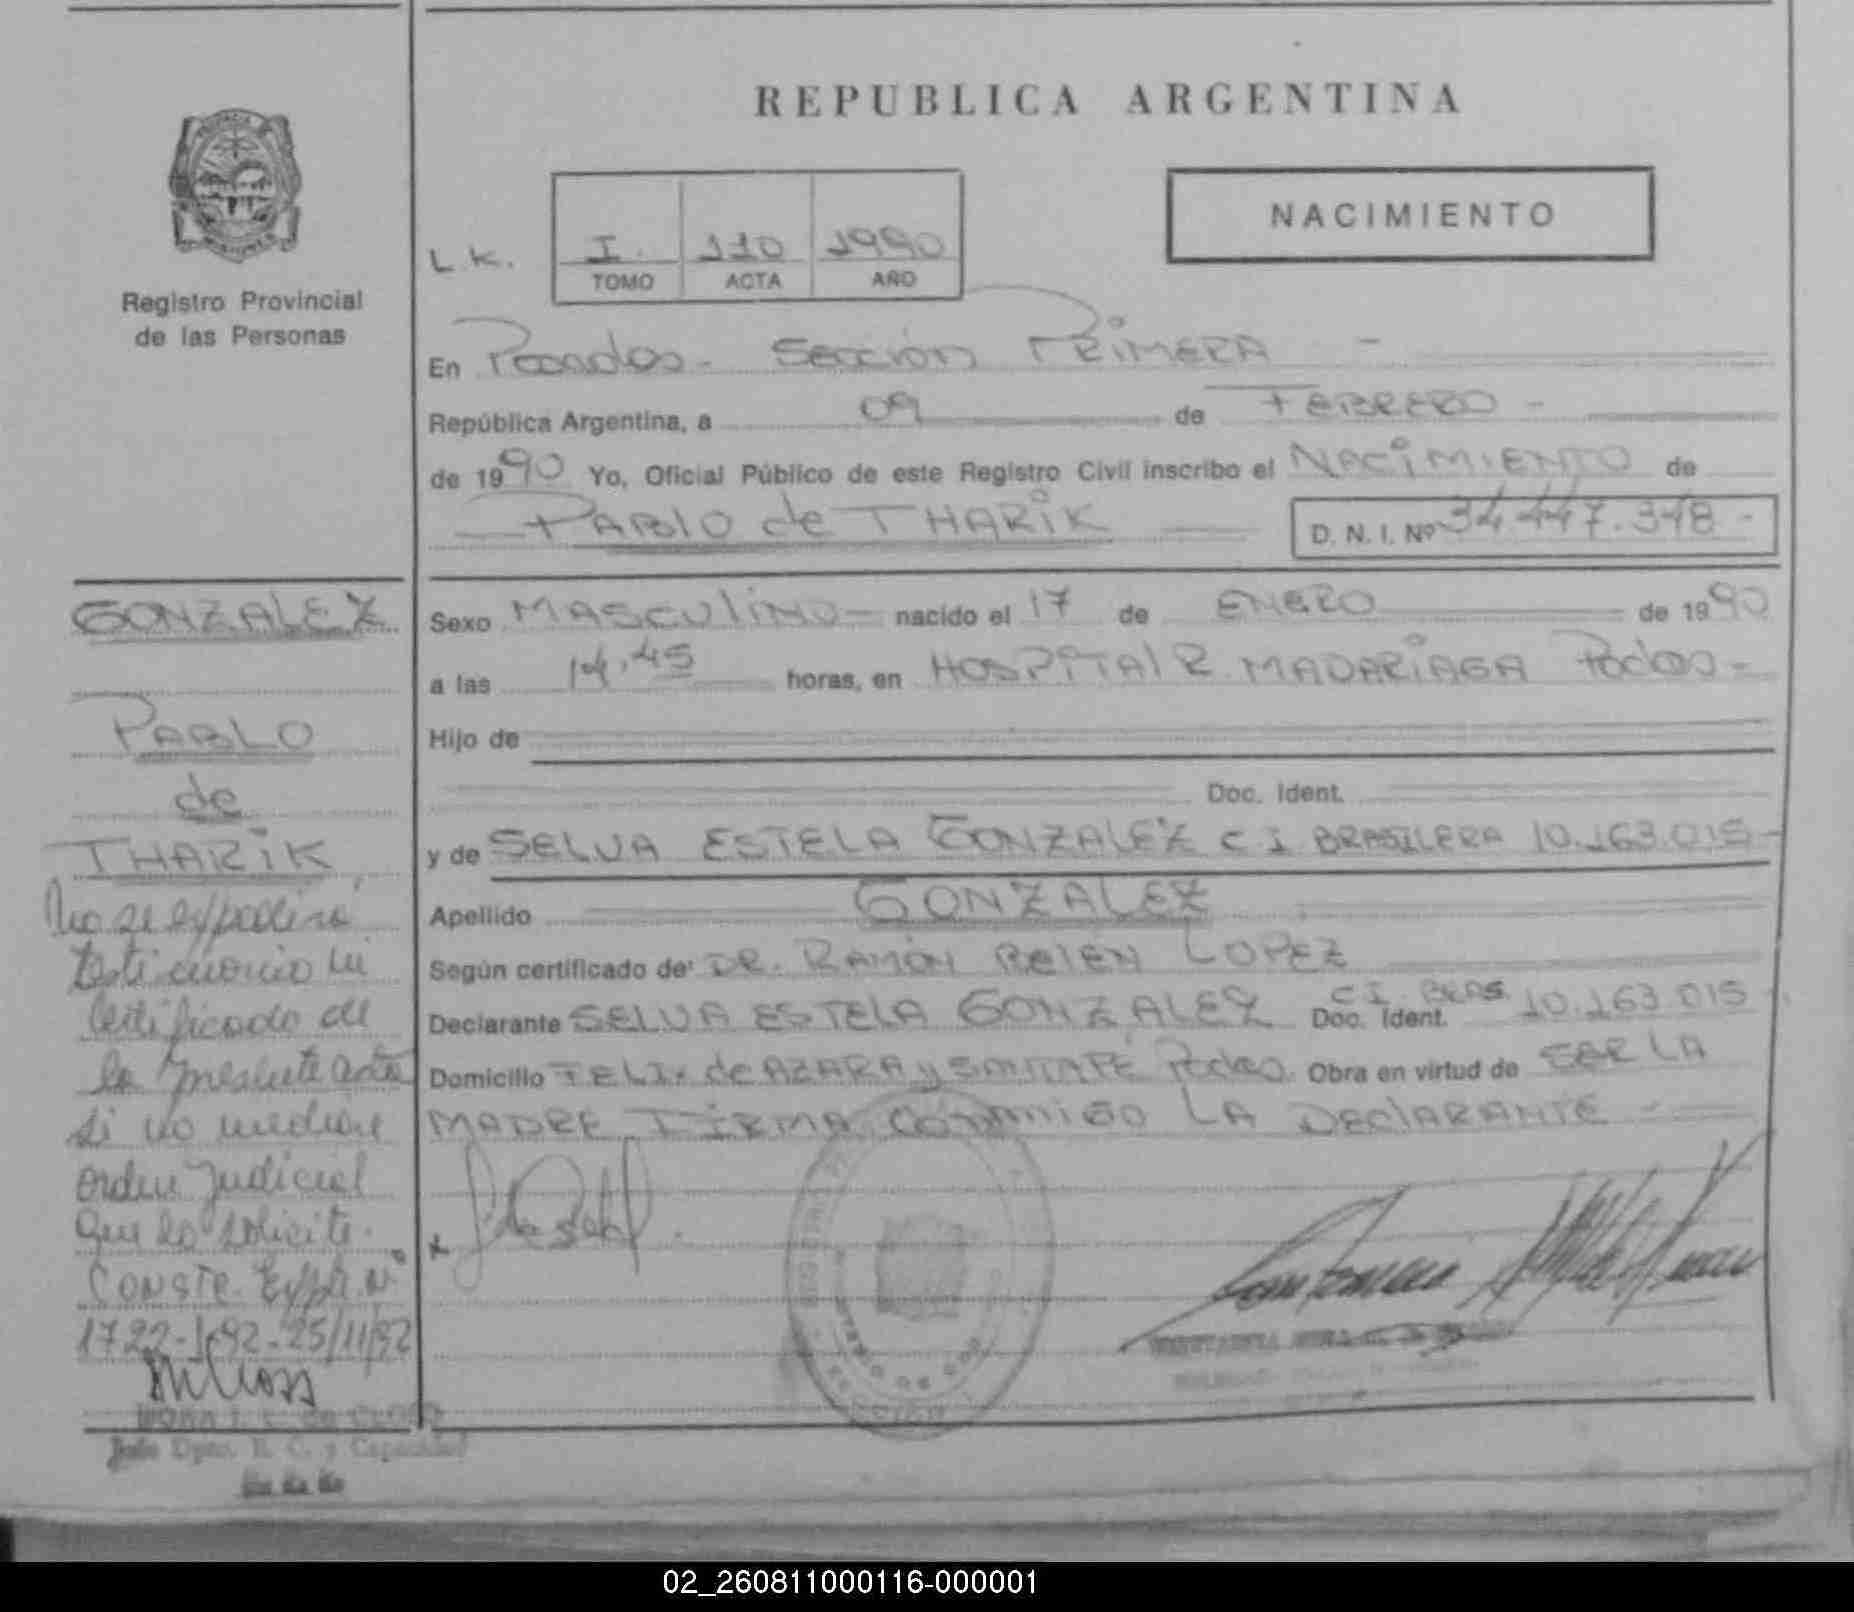 REPUBLICA ARGENTINA
NACIMIENTO
L.K. I. 110 1990
TOMO ACTA AÑO
Registro Provincial
de las Personas
En Posadas - Sección PRIMERA -
República Argentina, a 09 de FEBRERO -
de 1990 Yo, Oficial Público de este Registro Civil inscribo el NACIMIENTO de
PABLO de THARIK D. N. I. Nº 34.447.348 -
GONZALEZ
PABLO
de
THARIK
No se expedirá
testimonio ni
certificado de
la presente acta
si no mediare
orden judicial
que lo solicite.
CONSTE. Expte. Nº
1722-1-92-25/11/92
Sexo MASCULINO - nacido el 17 de ENERO de 1990
a las 14,45 horas, en HOSPITAL R. MADARIAGA Pdas -
Hijo de
Doc. Ident.
y de SELVA ESTELA GONZALEZ C I BRASILERA 10.163.015 -
Apellido GONZALEZ
Según certificado de DR. RAMON BELEN LOPEZ
Declarante SELVA ESTELA GONZALEZ Doc. Ident. C.I. BRAS. 10.163.015 -
Domicilio FELIX de AZARA y Pdas. Obra en virtud de SER LA
MADRE FIRMA CONMIGO LA DECLARANTE -
Jefe Dpto. R. C. y Capacidad
02_260811000116-000001